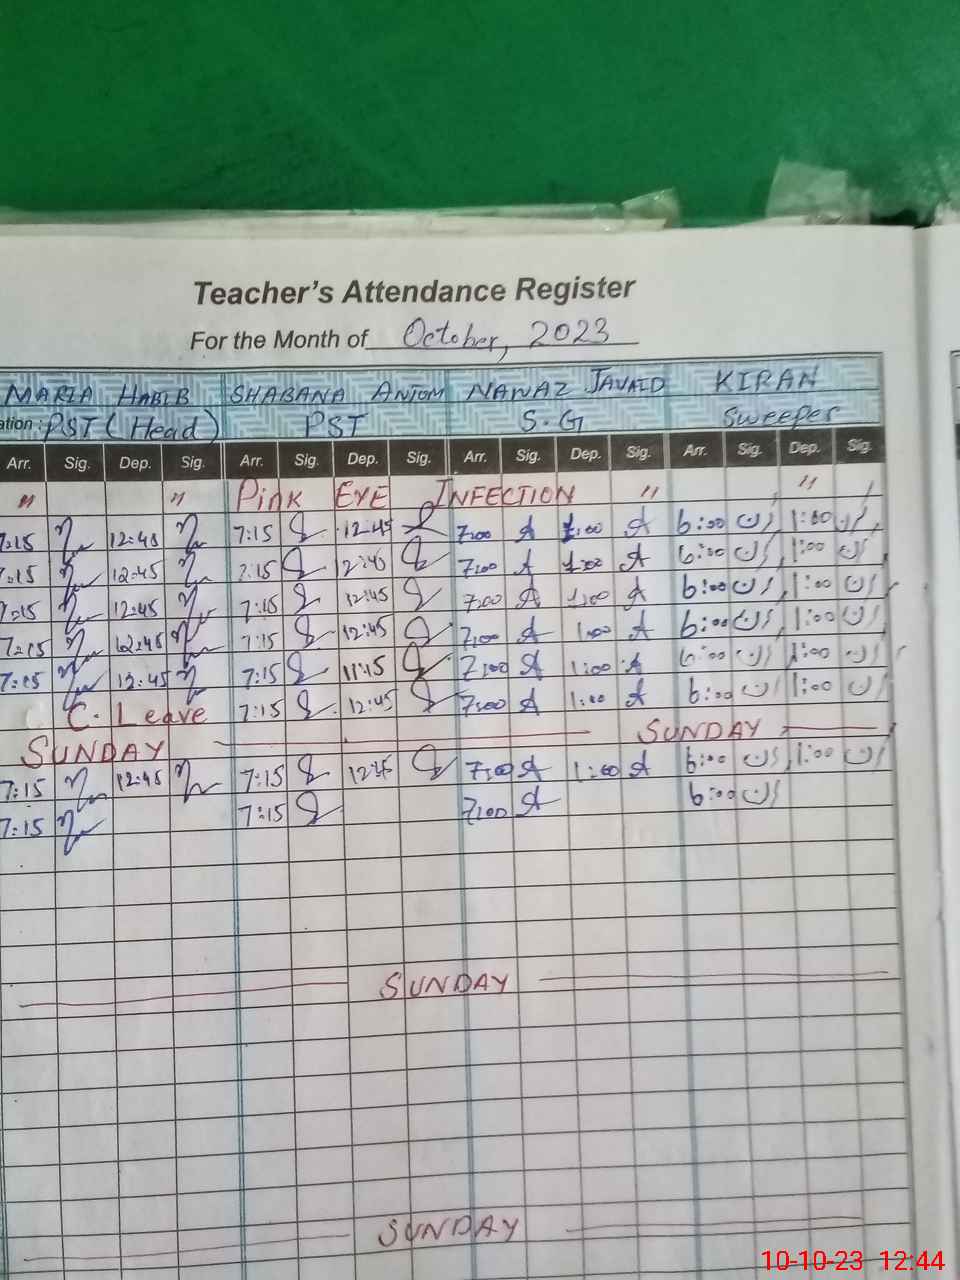 Teacher's Attendance Register
For the Month of October, 2023
MARIA HABIB SHABANA ANJOM NAWAZ JAVAID KIRAN
ation: PST (Head) PST S.G Sweeper
Arr. Sig. Dep. Sig. Arr. Sig. Dep. Sig. Arr. Sig. Dep. Sig. Arr. Sig. Dep. Sig.
" " PINK EYE INFECTION " "
7:15 12:45 7:15 12:45 7:00 A 1:00 A 6:00 1:00
7:15 12:45 7:15 12:45 7:00 A 1:00 A 6:00 1:00
7:15 12:45 7:15 12:45 7:00 A 1:00 A 6:00 1:00
7:15 12:45 7:15 12:45 7:00 A 1:00 A 6:00 1:00
7:15 12:45 7:15 11:45 7:00 A 1:00 A 6:00 1:00
C. Leave 7:15 12:45 7:00 A 1:00 A 6:00 1:00
SUNDAY SUNDAY
7:15 12:45 7:15 12:45 7:00 A 1:00 A 6:00 1:00
7:15 7:15 7:00 A 6:00
SUNDAY
SUNDAY
10-10-23 12:44